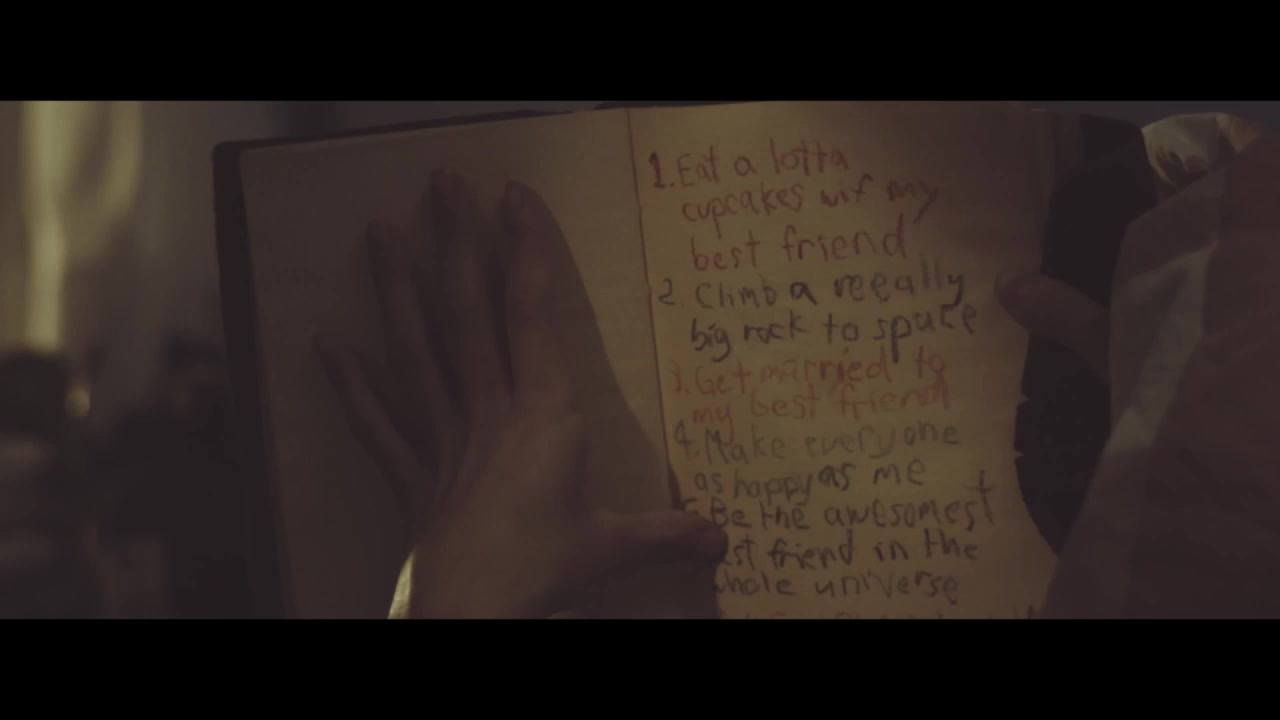 1. Eat a lotta
cupcakes wif my
best friend
2. Climb a reeally
big rock to space
3. Get married to
my best friend
4. Make everyone
as happy as me
Be the awesomest
friend in the
whole universe